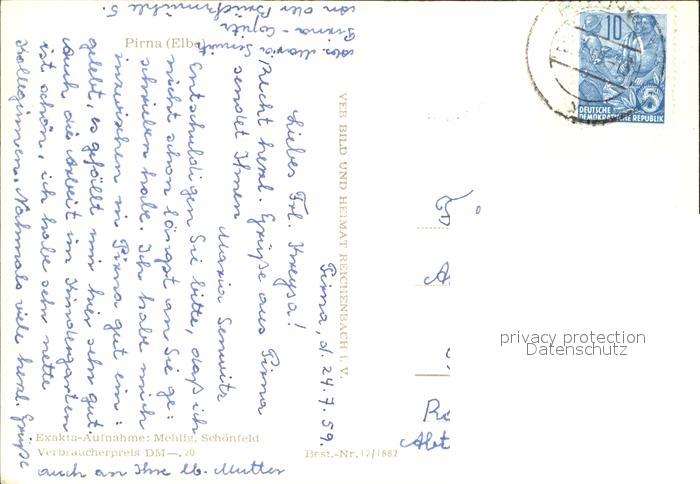 Pirna (Elbe)
Pirna, d. 24.7.59.
Liebes Frl. Kreysa!
Recht herzl. Grüße aus Pirna
sendet Ihnen
Maria
Entschuldigen Sie bitte, daß ich
nicht schon längst an Sie ge-
schrieben habe. Ich habe mich
inzwischen in Pirna gut ein-
gelebt, es gefällt mir hier sehr gut.
Auch die Arbeit im Kindergarten
ist schön, ich habe sehr nette
Kolleginnen. Nochmals viele herzl. Grüße
auch an Ihre lb. Mutter
Abs. Maria
Pirna - Copitz
an der Brückmühle 5.
VEB BILD UND HEIMAT REICHENBACH i. V.
Exakta-Aufnahme: Mehlig, Schönfeld
Verbraucherpreis DM —,20
Best.-Nr. 12/1882
10
5
DEUTSCHE
DEMOKRATISCHE REPUBLIK
privacy protection
Datenschutz